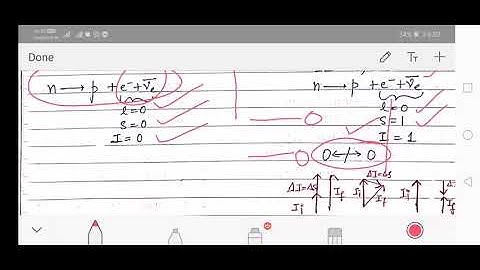 Done
n → p + e⁻ + ν̄e
l = 0
S = 0
I = 0
n → p + e⁻ + ν̄e
l = 0
S = 1
I = 1
0 ↮ 0
ΔI=ΔS
Ii
If
Ii
ΔI=ΔS
If
Ii
If